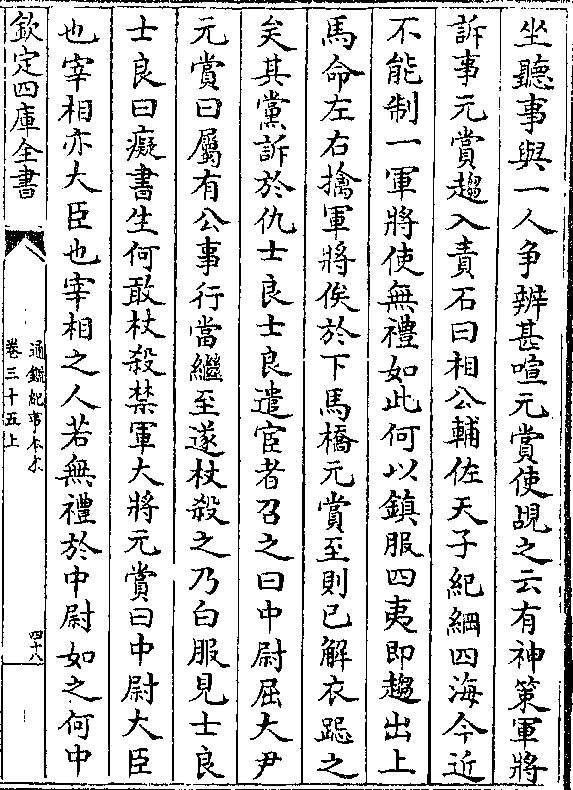 坐聽事與一人争辨甚喧元賞使覘之云有神策軍將
訴事元賞趨入責石曰相公輔佐天子紀綱四海今近
不能制一軍將使無禮如此何以鎮服四夷即趨出上
馬命左右擒軍將俟於下馬橋元賞至則已解衣跽之
矣其黨訴於仇士良士良遣宦者召之曰中尉屈大尹
元賞曰屬有公事行當繼至遂杖殺之乃白服見士良
士良曰癡書生何敢杖殺禁軍大將元賞曰中尉大臣
也宰相亦大臣也宰相之人若無禮於中尉如之何中
欽定四庫全書
通鑑紀事本末
卷三十五上
四十八